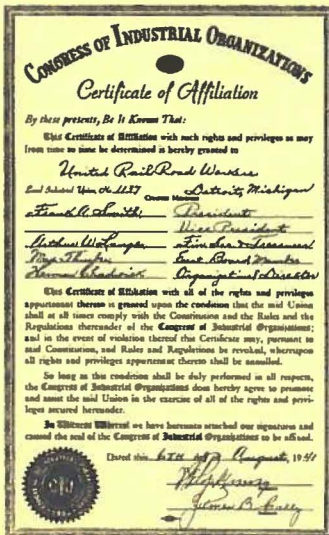 CONGRESS OF INDUSTRIAL ORGANIZATIONS
Certificate of Affiliation
By these presents, Be It Known That:
This Certificate of Affiliation with such rights and privileges as may
from time to time be determined is hereby granted to
United RailRoad Workers
Local Industrial Union, No. Detroit, Michigan
CHARTER MEMBERS
Frank A. Smith, President
Vice President
Arthur Fin Sec & Treasurer
Exec Board Member
Herman Organizational Director
This Certificate of Affiliation with all of the rights and privileges
appurtenant thereto is granted upon the condition that the said Union
shall at all times comply with the Constitution and the Rules and the
Regulations thereunder of the Congress of Industrial Organizations;
and in the event of violation thereof this Certificate may, pursuant to
said Constitution, and Rules and Regulations be revoked, whereupon
all rights and privileges appurtenant thereto shall be annulled.
So long as this condition shall be duly performed in all respects,
the Congress of Industrial Organizations does hereby agree to promote
and assist the said Union in the exercise of all of the rights and privi-
leges secured hereunder.
In Witness Whereof we have hereunto attached our signatures and
caused the seal of the Congress of Industrial Organizations to be affixed.
Dated this 6TH day August, 1941
James B. Carey